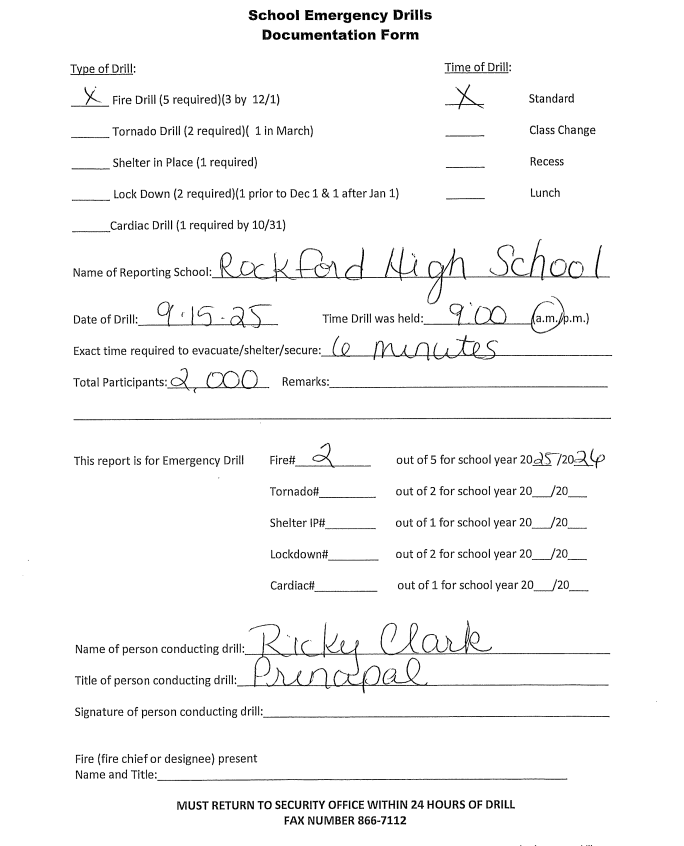 School Emergency Drills
Documentation Form
Type of Drill: Time of Drill:
X Fire Drill (5 required)(3 by 12/1) X Standard
______ Tornado Drill (2 required)( 1 in March) ______ Class Change
______ Shelter in Place (1 required) ______ Recess
______ Lock Down (2 required)(1 prior to Dec 1 & 1 after Jan 1) ______ Lunch
______Cardiac Drill (1 required by 10/31)
Name of Reporting School: Rockford High School
Date of Drill: 9-15-25 Time Drill was held: 9:00 (a.m./p.m.)
Exact time required to evacuate/shelter/secure: 6 minutes
Total Participants: 2,000 Remarks:
This report is for Emergency Drill Fire# 2 out of 5 for school year 2025/2026
Tornado#________ out of 2 for school year 20___/20___
Shelter IP#________ out of 1 for school year 20___/20___
Lockdown#________ out of 2 for school year 20___/20___
Cardiac#________ out of 1 for school year 20___/20___
Name of person conducting drill: Ricky Clark
Title of person conducting drill: Principal
Signature of person conducting drill:
Fire (fire chief or designee) present
Name and Title:
MUST RETURN TO SECURITY OFFICE WITHIN 24 HOURS OF DRILL
FAX NUMBER 866-7112